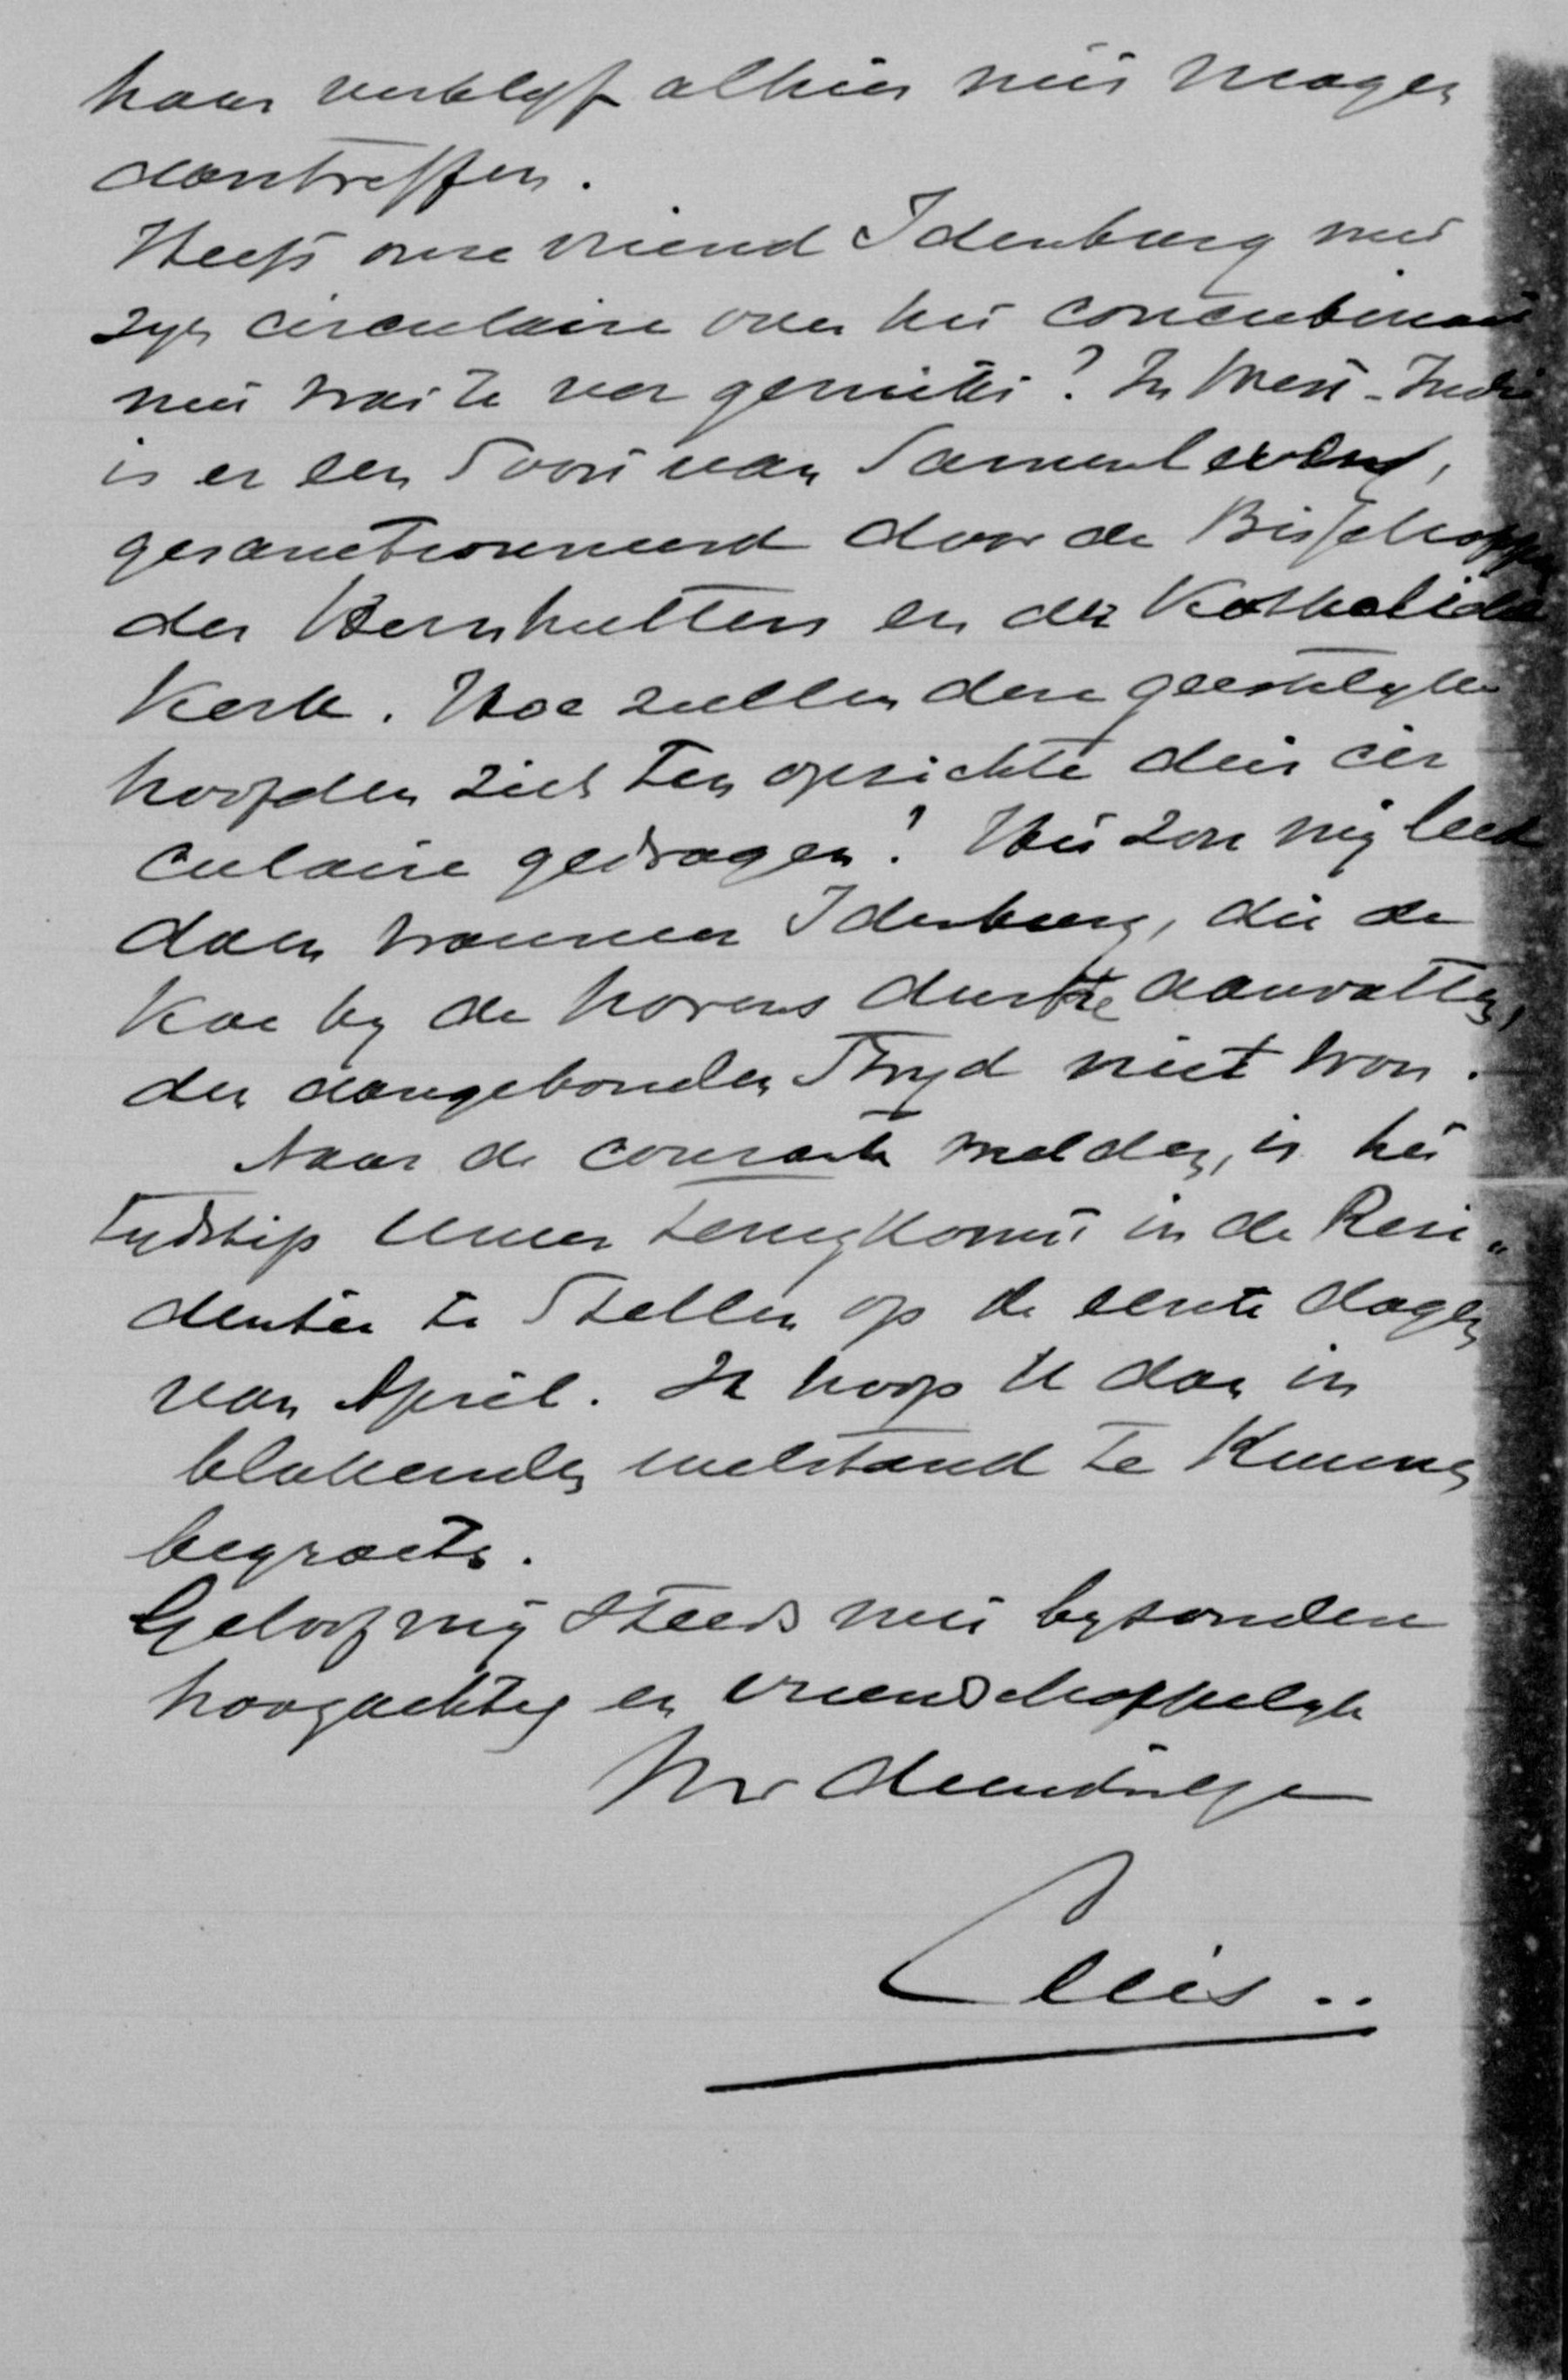 haar verblyf alhier niet mogen
aantreffen.
Heeft onze vriend Idenburg met
zyn circulaire over het concubinaat
niet wat te ver gemikt? In West-Indie
is er een soort van samenleving,
gesanctionneerd door de Bisschoppen
der Hernhutters en der Katholieke
Kerk. Hoe zullen deze geestelyke
hoofden zich ten opzichte dier cir
culaire gedragen? Het zou mij leed
doen wanneer Idenburg, die de
koe by de horens durfde aanvatten,
den aangebonden stryd niet won.
Naar de courante melden, is het
tydstip Uwer terugkomst in de Resi„
dentie te stellen op de eerste dagen
van April. Ik hoop U dan in
blakenden welstand te kunnen
begroete.
Geloof mij steeds met byzondere
hoogachting en vriendschappelyk
Uw dienstwillige
Ellis..